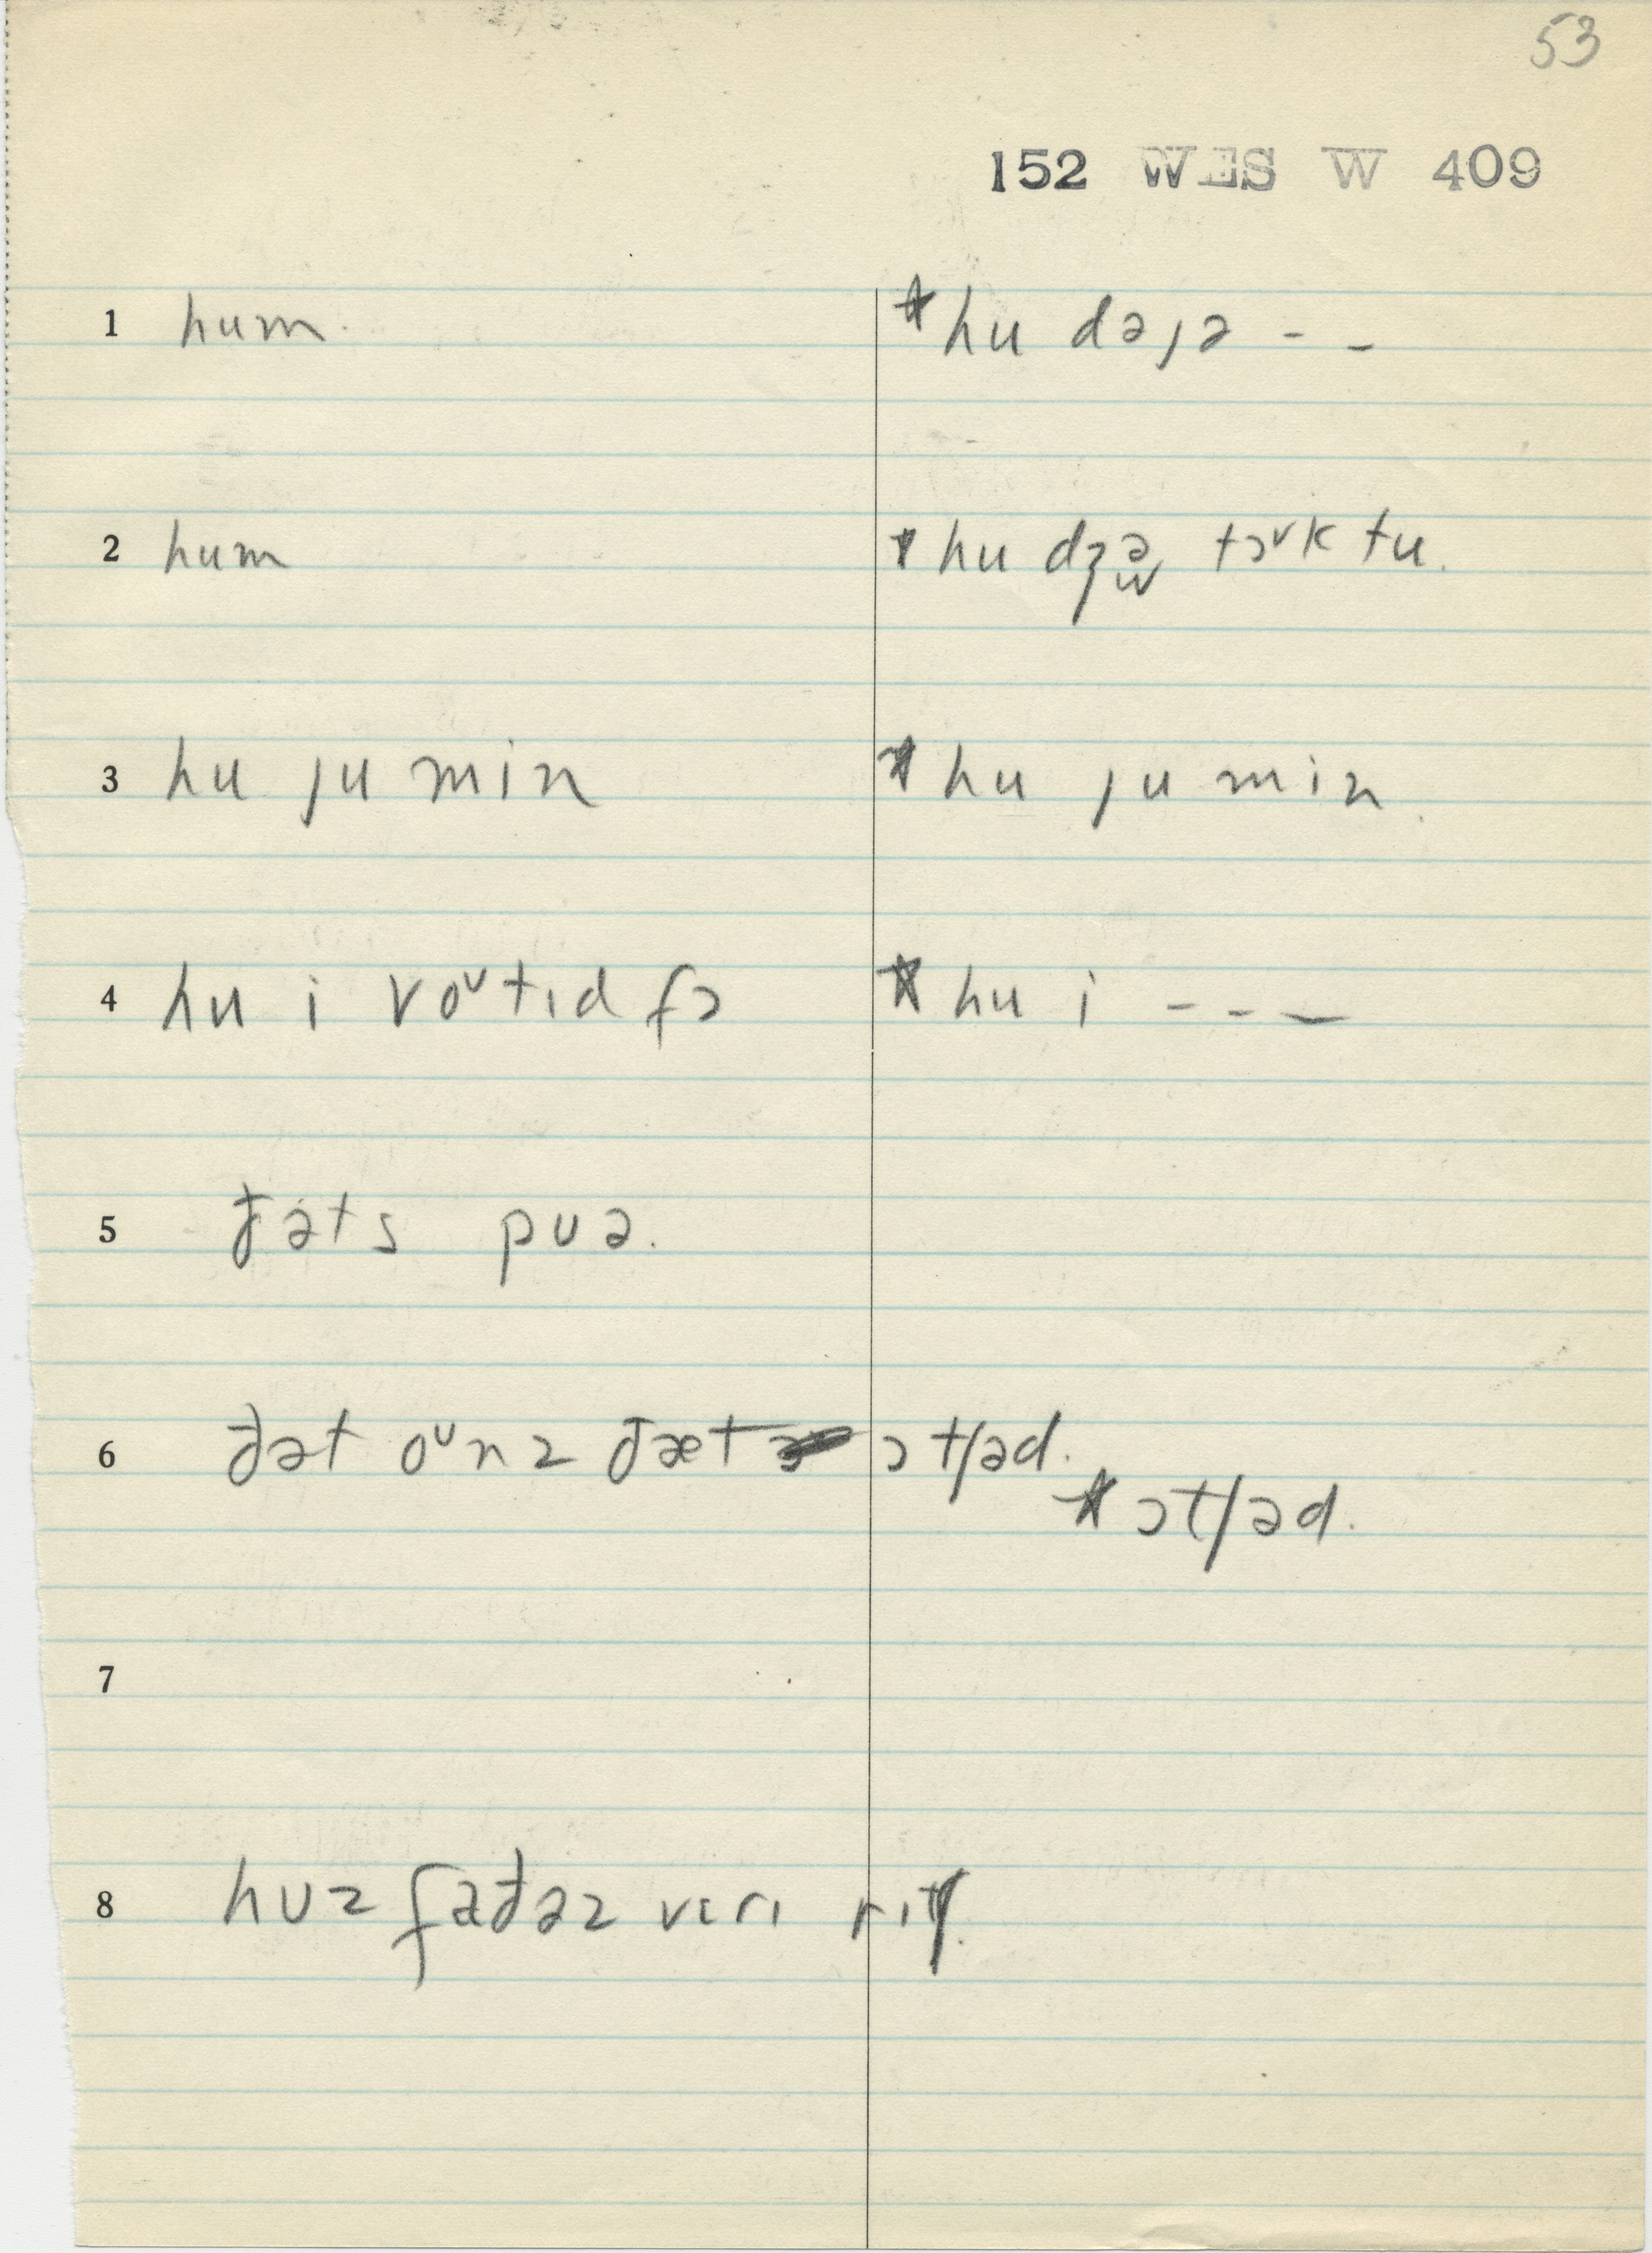 53
152 WES W 409
1 hum. *hu dəȷə - -
2 hum *hu dʒə tɔᴜk tu.
3 hu ȷu min *hu ȷu min.
4 hu i voᴜtɪd fɔ *hu i - - —
5 đəts pᴜə.
6 đət oᴜnz đæt ɔtʃəd.
*ɔtʃəd.
7
8 huz fađəz vɛrɪ rɪtʃ.